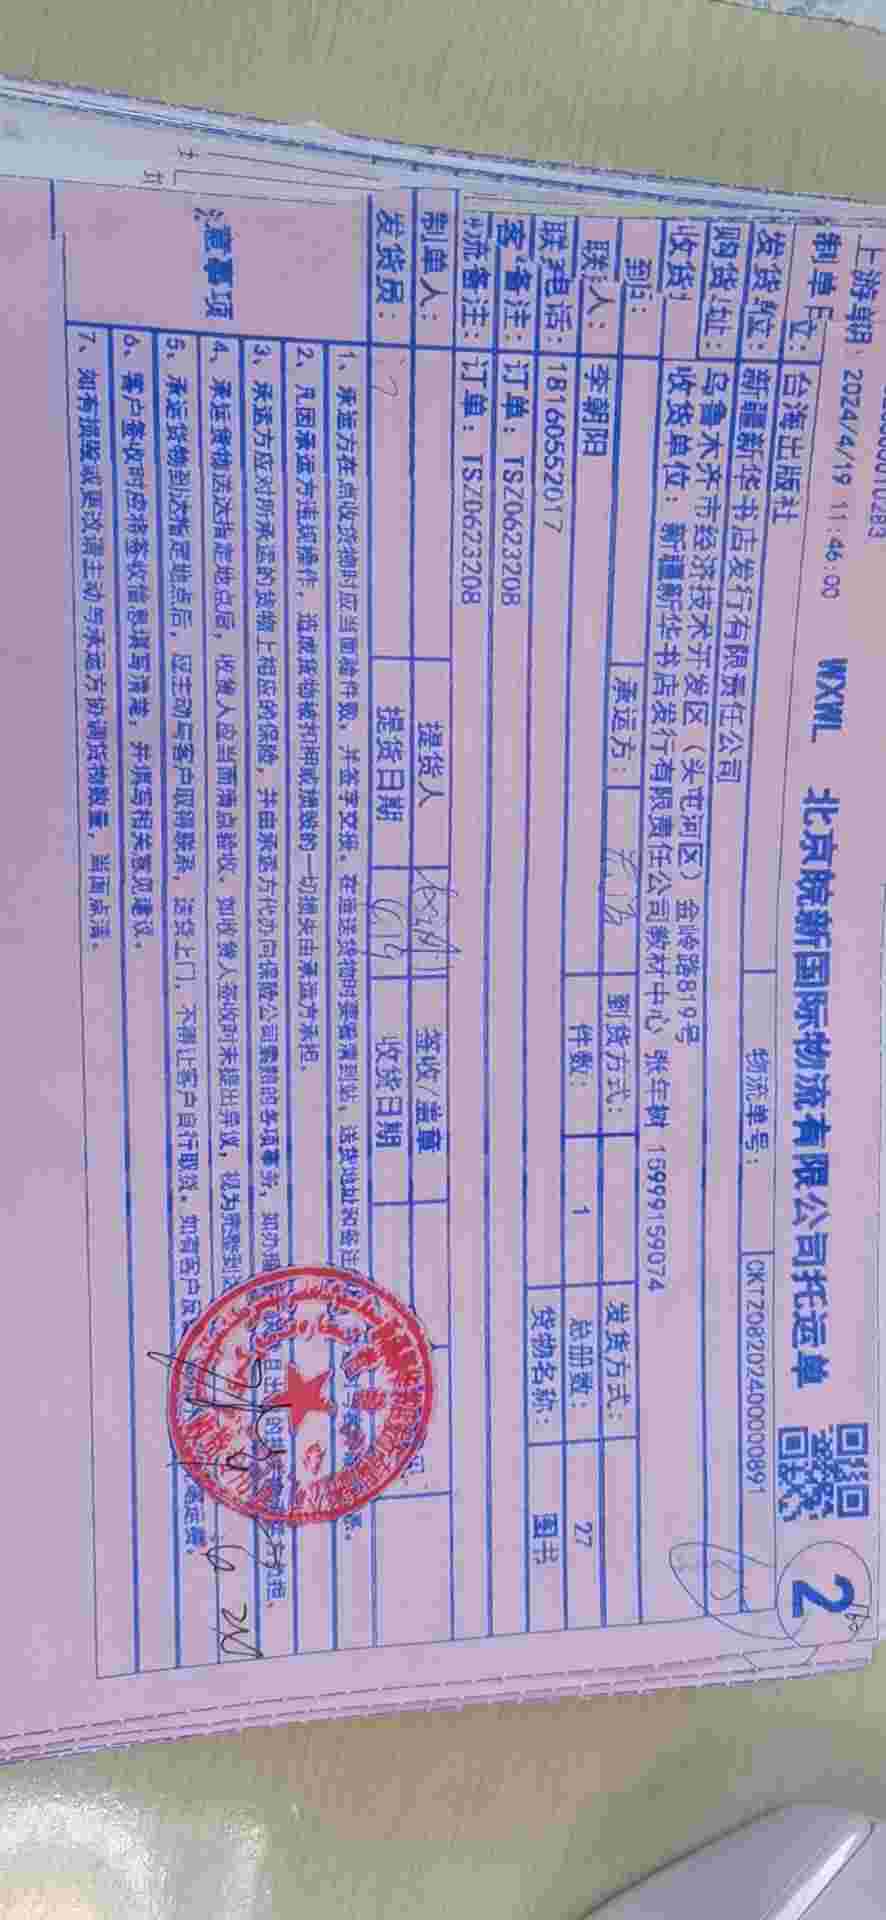 WXWL 北京皖新国际物流有限公司托运单
2
2024/4/19 11:46:00
物流单号: CKTZ0820240000891
台海出版社
新疆新华书店发行有限责任公司
乌鲁木齐市经济技术开发区（头屯河区）金岭路819号
收货单位: 新疆新华书店发行有限责任公司教材中心 张年树 15999159074
承运方: 到货方式: 发货方式:
李朝阳 件数: 1 总册数: 27
联系电话: 18160552017 货物名称: 图书
客户备注: 订单: TSZ0623208
物流备注: 订单: TSZ0623208
制单人: 提货人 签收/盖章
发货员: 提货日期 收货日期
注意事项
1、承运方在点收货物时应当面验件数，并签字交接。在运送货物时要看清到站、送货地址和备注
2、凡因承运方违规操作，造成货物被扣押或损毁的一切损失由承运方承担。
3、承运方应对所承运的货物上相应的保险，并由承运方代办向保险公司索赔的各项事务，如办理
4、承运货物送达指定地点后，收货人应当面清点验收。如收货人签收时未提出异议，视为完整到达
5、承运货物到达指定地点后，应主动与客户取得联系，送货上门，不得让客户自行取货。如有客户反
6、客户签收时应将签收信息填写清楚，并填写相关意见建议。
7、如有损毁或更改请主动与承运方协调货物数量，当面点清。